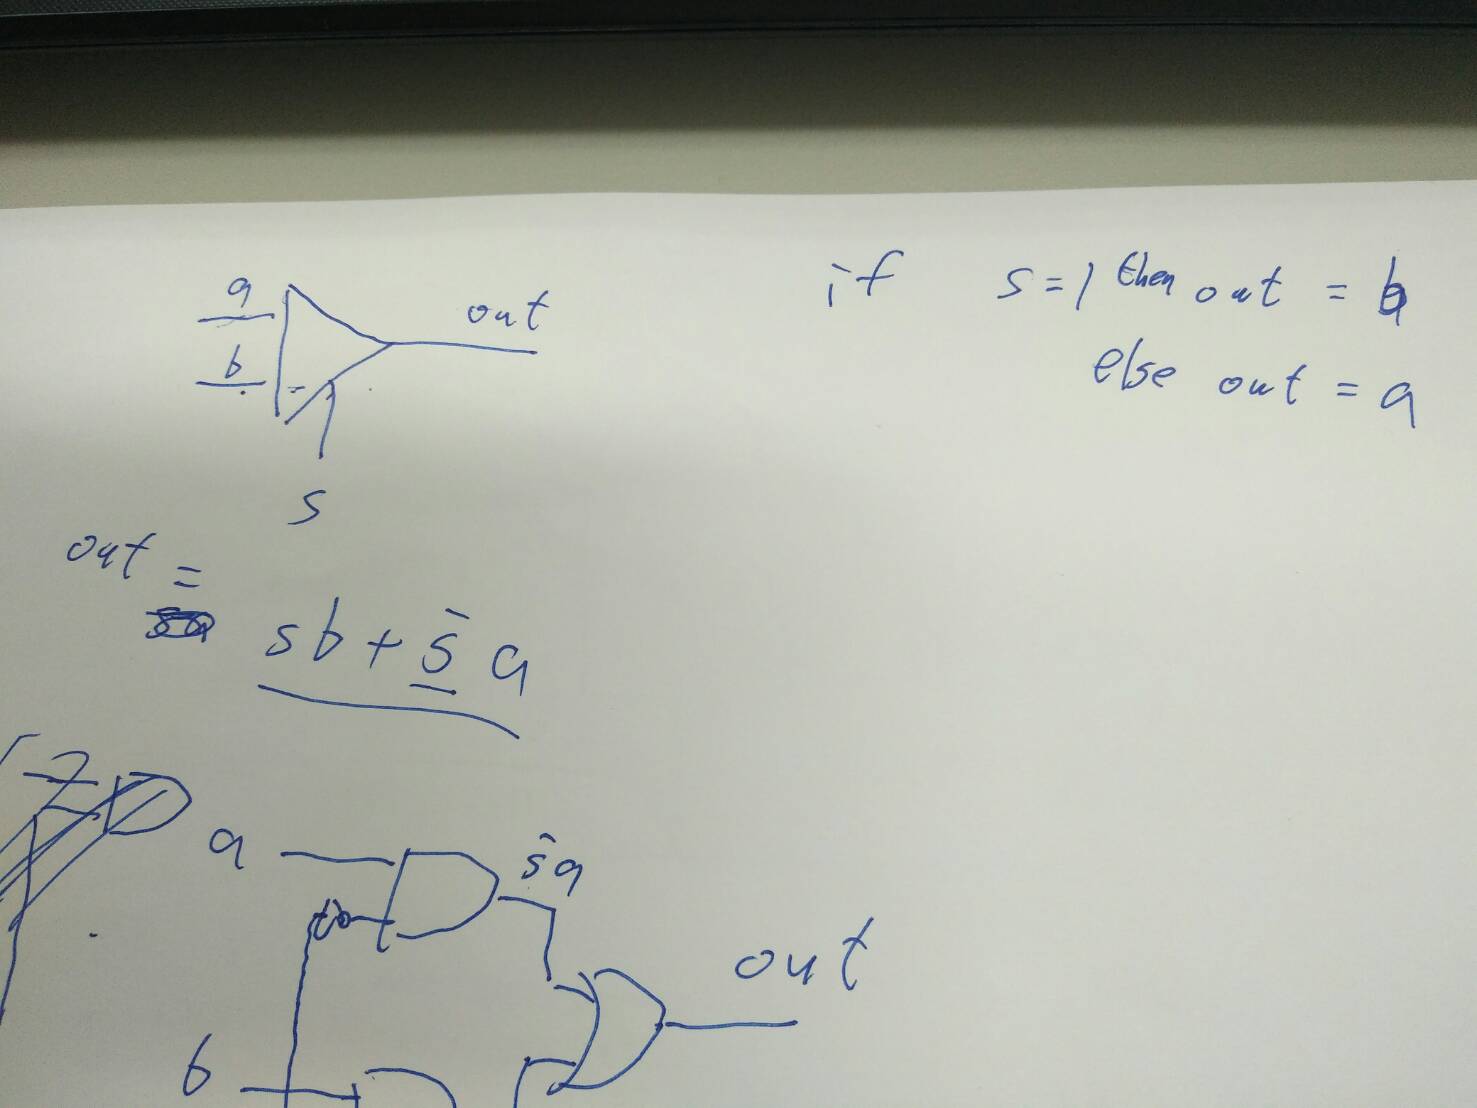 a
b
out
s
if s=1 then out = b
else out = a
out =
sb + s̄ a
a
s̄a
out
b